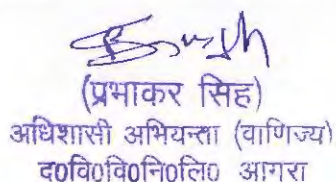 (प्रभाकर सिंह)
अधिशासी अभियन्ता (वाणिज्य)
द0वि0वि0नि0लि0 आगरा